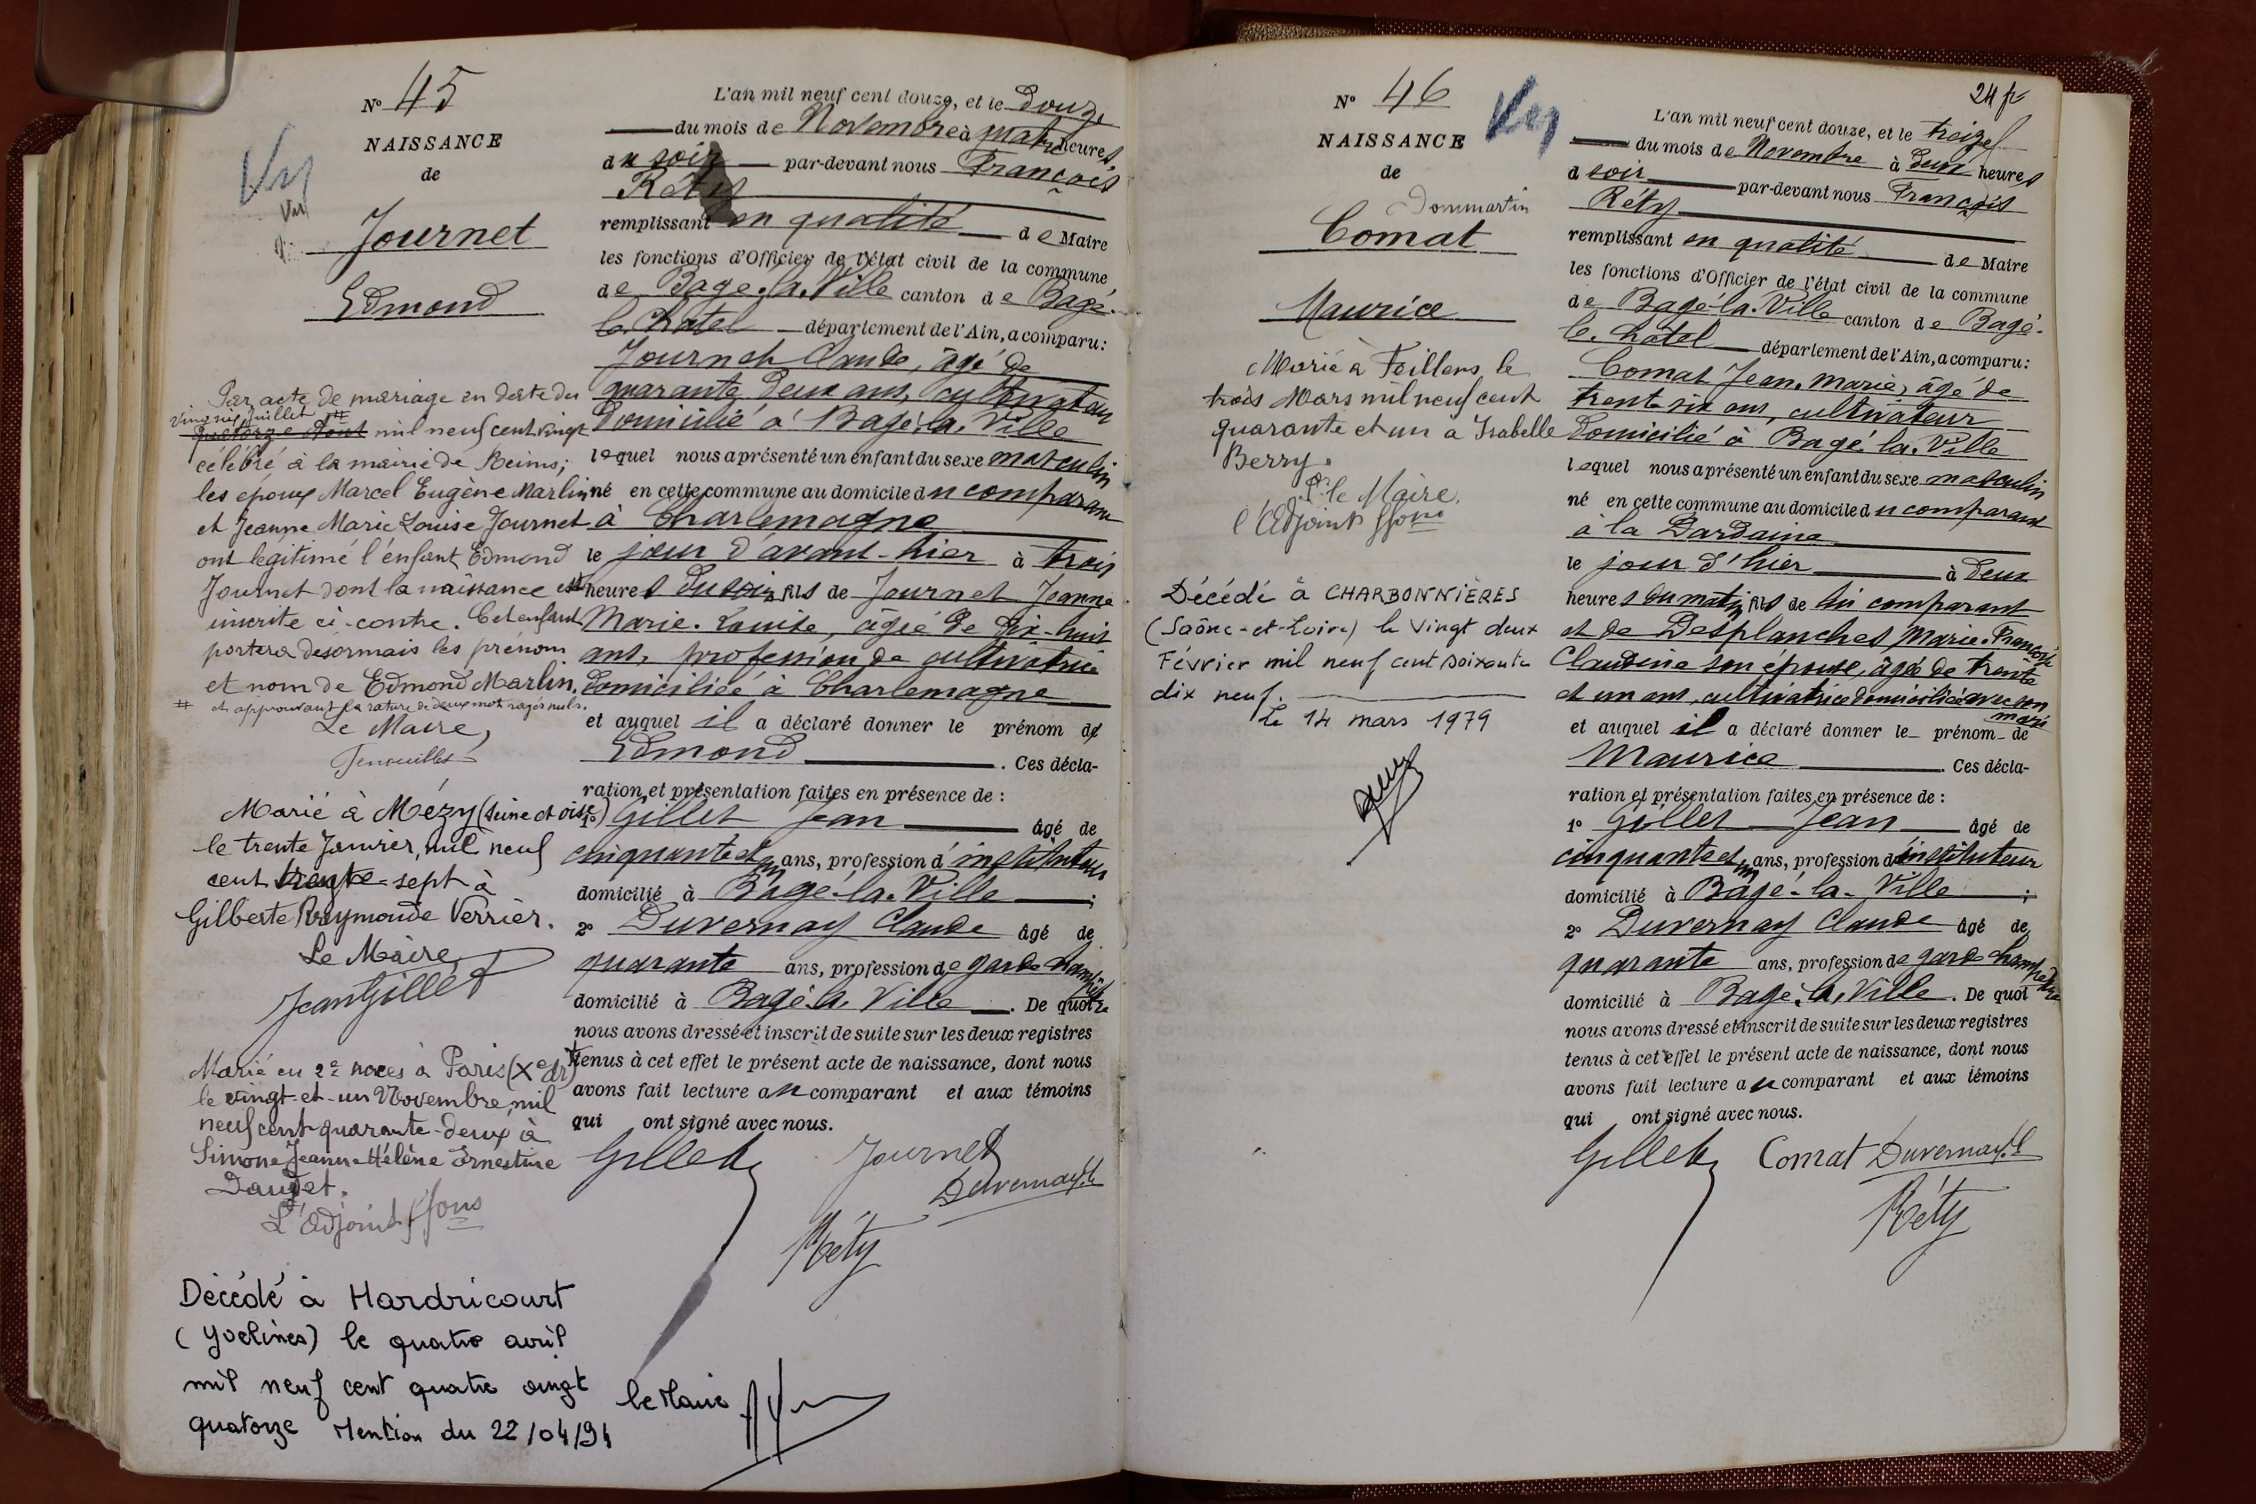 N° 45
NAISSANCE
de
Journet
Edmond
Par acte de mariage en date du
vingt six Juillet
quatorze Août mil neuf cent vingt
célébré à la mairie de Reims;
les époux Marcel Eugène Marlin
et Jeanne Marie Louise Journet
ont legitimé l'enfant Edmond
Journet dont la naissance est
inscrite ci-contre. Cet enfant
portera désormais les prénom
et nom de Edmond Marlin.
et approuvant la rature de deux mots rayés nuls.
Le Maire,
Marié à Mézy (Seine et oise)
le trente Janvier, mil neuf
cent trente-sept à
Gilberte Raymonde Verrier.
Le Maire
Jean Gillet
Marié en 2e noces à Paris (Xe Arrt)
le vingt-et-un Novembre, mil
neuf cent quarante-deux à
Simone Jeanne Hélène Ernestine
Dauget.
L'adjoint
Décédé à Hardricourt
(Yvelines) le quatre avril
mil neuf cent quatre vingt
quatorze Mention du 22/04/94
le Maire
L'an mil neuf cent douze, et le Douze
du mois de Novembre à quatre heures
du soir par-devant nous François
Réty
remplissant en qualité de Maire
les fonctions d'Officier de l'état civil de la commune
de Bagé-la-Ville canton de Bagé-
le-Châtel département de l'Ain, a comparu:
Journet Claude, âgé de
quarante deux ans, cultivateur
Domicilié à Bagé-la-Ville
lequel nous a présenté un enfant du sexe masculin
né en cette commune au domicile du comparant
à Charlemagne
le jour d'avant-hier à trois
heures du soir fils de Journet Jeanne
Marie-Louise, âgée de dix-huit
ans, profession de cultivatrice
domiciliée à Charlemagne
et auquel il a déclaré donner le prénom de
Edmond. Ces décla-
ration et présentation faites en présence de :
1° Gillet Jean âgé de
cinquante et un ans, profession d'instituteur
domicilié à Bagé-la-Ville ;
2° Duvernay Claude âgé de
quarante ans, profession de garde champêtre
domicilié à Bagé-la-Ville. De quoi
nous avons dressé et inscrit de suite sur les deux registres
tenus à cet effet le présent acte de naissance, dont nous
avons fait lecture au comparant et aux témoins
qui ont signé avec nous.
Gillet Journet
Duvernay
Réty
24
N° 46
NAISSANCE
de
Dommartin
Comat
Maurice
Marié à Feillens le
trois Mars mil neuf cent
quarante et un à Isabelle
Berry.
Pr le Maire
l'Adjoint
Décédé à CHARBONNIÈRES
(Saône-et-Loire) le vingt deux
Février mil neuf cent soixante
dix neuf.
Le 14 mars 1979
L'an mil neuf cent douze, et le treize
du mois de Novembre à deux heures
d soir par-devant nous François
Réty
remplissant en qualité de Maire
les fonctions d'Officier de l'état civil de la commune
de Bagé-la-Ville canton de Bagé-
le-Châtel département de l'Ain, a comparu:
Comat Jean-Marie, âgé de
trente six ans, cultivateur
domicilié à Bagé-la-Ville
lequel nous a présenté un enfant du sexe masculin
né en cette commune au domicile du comparant
à la Dardaine
le jour d'hier à deux
heures du matin fils de lui comparant
et de Desplanches Marie-Françoise
Claudine son épouse, âgée de trente
et un ans, cultivatrice domiciliée avec son
mari
et auquel il a déclaré donner le prénom de
Maurice. Ces décla-
ration et présentation faites en présence de :
1° Gillet Jean âgé de
cinquante et un ans, profession d'instituteur
domicilié à Bagé-la-Ville ;
2° Duvernay Claude âgé de
quarante ans, profession de garde champêtre
domicilié à Bagé-la-Ville. De quoi
nous avons dressé et inscrit de suite sur les deux registres
tenus à cet effet le présent acte de naissance, dont nous
avons fait lecture au comparant et aux témoins
qui ont signé avec nous.
Gillet Comat Duvernay
Réty